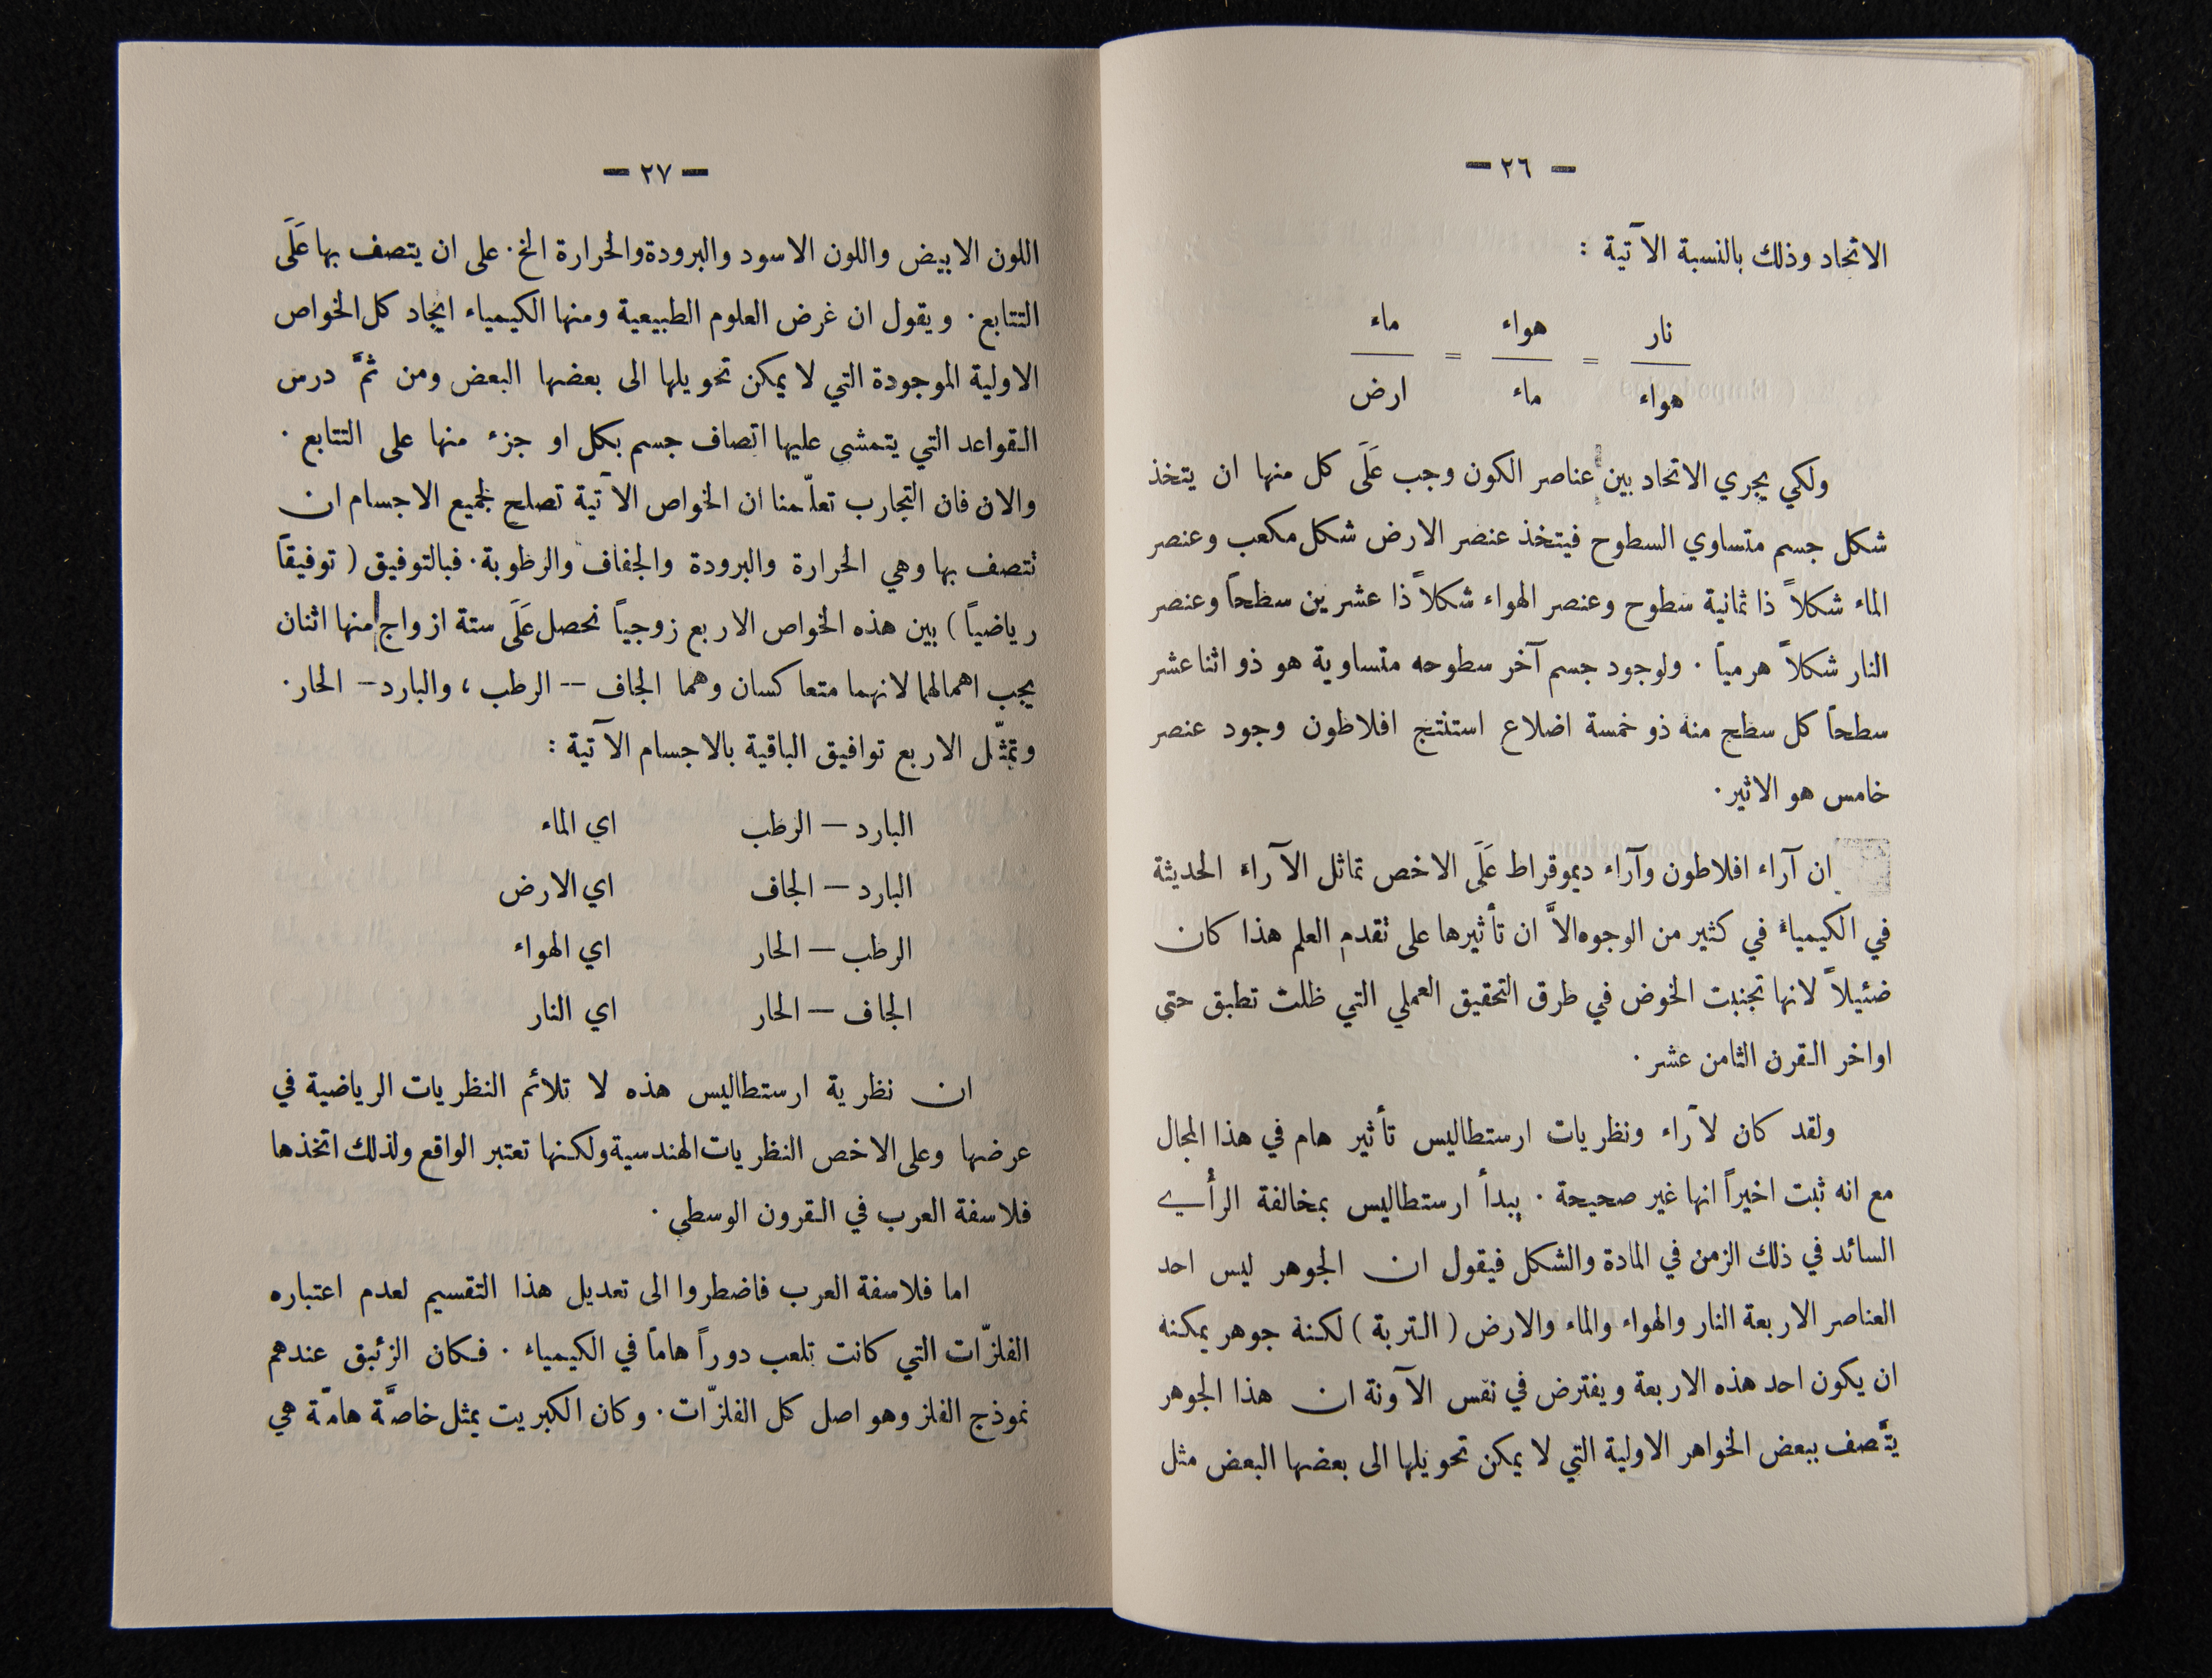 — ٢٦ —
الاتحاد وذلك بالنسبة الآتية :
نار = هواء = ماء
هواء ماء ارض
ولكي يجري الاتحاد بين عناصر الكون وجب عَلَى كل منها ان يتخذ
شكل جسم متساوي السطوح فيتخذ عنصر الارض شكل مكعب وعنصر
الماء شكلاً ذا ثمانية سطوح وعنصر الهواء شكلاً ذا عشرين سطحاً وعنصر
النار شكلاً هرمياً . ولوجود جسم آخر سطوحه متساوية هو ذو اثنا عشر
سطحاً كل سطح منه ذو خمسة اضلاع استنتج افلاطون وجود عنصر
خامس هو الاثير .
ان آراء افلاطون وآراء ديموقراط عَلَى الاخص تماثل الآراء الحديثة
في الكيمياء في كثير من الوجوه الاَّ ان تأثيرها على تقدم العلم هذا كان
ضئيلاً لانها تجنبت الخوض في طرق التحقيق العملي التي ظلت تطبق حتى
اواخر القرن الثامن عشر .
ولقد كان لآراء ونظريات ارستطاليس تأثير هام في هذا المجال
مع انه ثبت اخيراً انها غير صحيحة . يبدأ ارستطاليس بمخالفة الرأي
السائد في ذلك الزمن في المادة والشكل فيقول ان الجوهر ليس احد
العناصر الاربعة النار والهواء والماء والارض ( التربة ) لكنه جوهر يمكنه
ان يكون احد هذه الاربعة ويفترض في نفس الآونة ان هذا الجوهر
يتَّصف ببعض الخواهر الاولية التي لا يمكن تحويلها الى بعضها البعض مثل
— ٢٧ —
اللون الابيض واللون الاسود والبرودة والحرارة الخ . على ان يتصف بها عَلَى
التتابع . ويقول ان غرض العلوم الطبيعية ومنها الكيمياء ايجاد كل الخواص
الاولية الموجودة التي لا يمكن تحويلها الى بعضها البعض ومن ثمَّ درس
القواعد التي يتمشى عليها اتصاف جسم بكل او جزء منها على التتابع .
والان فان التجارب تعلّمنا ان الخواص الآتية تصلح لجميع الاجسام ان
تتصف بها وهي الحرارة والبرودة والجفاف والرطوبة . فبالتوفيق ( توفيقاً
رياضياً ) بين هذه الخواص الاربع زوجياً نحصل عَلَى ستة ازواج منها اثنان
يجب اهمالهما لانهما متعاكسان وهما الجاف — الرطب ، والبارد — الحار .
وتمثّل الاربع توافيق الباقية بالاجسام الآتية :
البارد — الرطب اي الماء
البارد — الجاف اي الارض
الرطب — الحار اي الهواء
الجاف — الحار اي النار
ان نظرية ارستطاليس هذه لا تلائم النظريات الرياضية في
عرضها وعلى الاخص النظريات الهندسية ولكنها تعتبر الواقع ولذلك اتخذها
فلاسفة العرب في القرون الوسطى .
اما فلاسفة العرب فاضطروا الى تعديل هذا التقسيم لعدم اعتباره
الفلزّات التي كانت تلعب دوراً هاماً في الكيمياء . فكان الزئبق عندهم
نموذج الفلز وهو اصل كل الفلزّات . وكان الكبريت يمثل خاصَّة هامّة هي